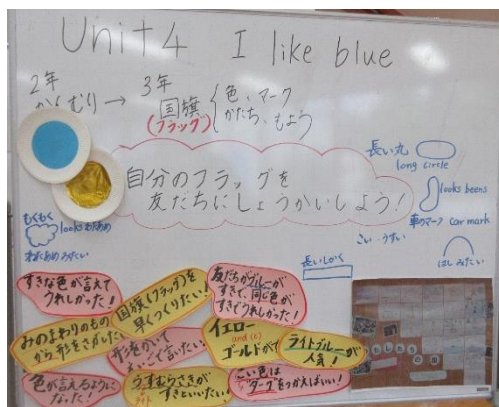 Unit 4 I like blue
2年
かんむり →
3年
国旗
(フラッグ)
色、マーク
かたち、もよう
自分のフラッグを
友だちにしょうかいしよう!
長い丸
long circle
looks beens
車のマーク car mark
こい・うすい
はしみたい
もくもく
looks わたあめ
わたあめみたい
長いしかく
すきな色が言えて
うれしかった!
国旗(フラッグ)を
早くつくりたい!
友だちがブルーが
すきで、同じ色が
すきでうれしかった!
みのまわりのもの
から形をさがしたい
形をかいて
えいごで言いたい
イエロー
and(と)
ゴールドがす
ライトブルーが
人気!
色が言えるように
なった!
うすむらさきが
すきといいたい!
こい色は
"ダーク"をつかえばいい!